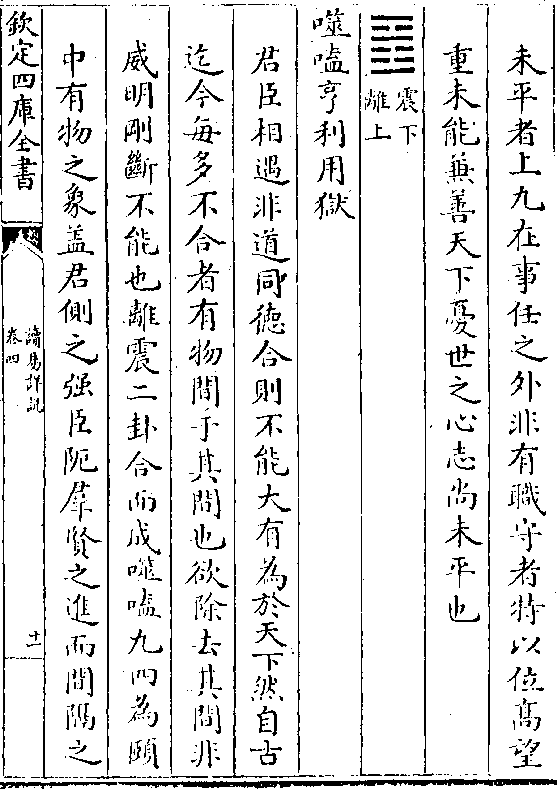 未平者上九在事任之外非有職守者特以位高望
重未能兼善天下憂世之心志尚未平也
震下
離上
噬嗑亨利用獄
君臣相遇非道同德合則不能大有為於天下然自古
迄今每多不合者有物間乎其間也欲除去其間非
威明剛斷不能也離震二卦合而成噬嗑九四為頤
中有物之象盖君側之强臣阨羣賢之進而間隔之
欽定四庫全書
讀易詳說
卷四
十一